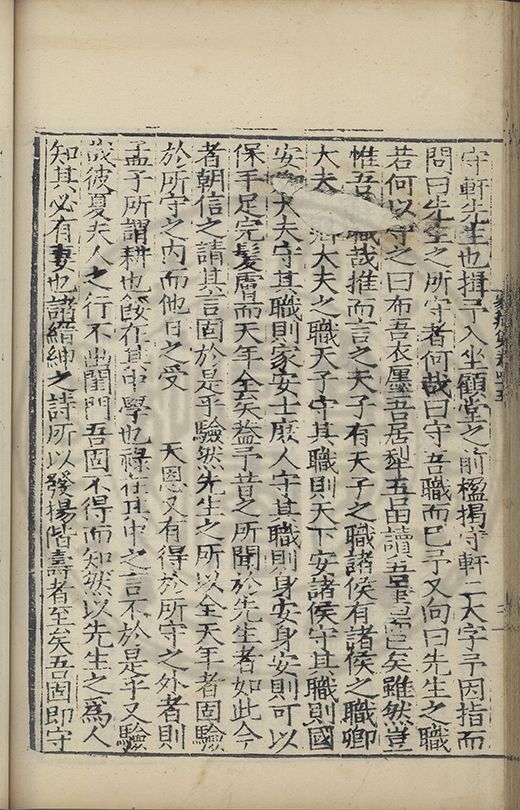 守軒先生也揖予入坐顧堂之前楹揭守軒二大字予因指而
問曰先生之所守者何哉曰守吾職而已予又问曰先生之職
若何以守之曰布吾衣壓吾居犁吾田讀吾書而已矣雖然豈
惟吾職哉推而言之天子有天子之職諸侯有諸侯之職卿
大夫大夫之職天子守其職則天下安諸侯守其職則國
安大夫守其職則家安士庶人守其職則身安身安則可以
保手足完髮膚而天年全矣益予昔之所聞於先生者如此今
者朝信之請其言固於是乎驗然先生之所以全天年者固驗
於所守之内而他日之受 天恩又有得於所守之外者則
孟子所謂耕也餒在其中學也祿在其中之言不於是乎又驗
哉彼夏夫人之行不出閨門吾固不得而知然以先生之為人
知其必有妻也諸縉紳之詩所以發揚偕壽者至矣吾固即守